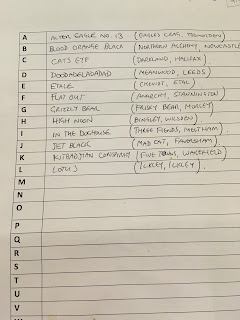 A ALTER EAGLE NO. 13 (EAGLES CRAG, TODMORDEN)
B BLOOD ORANGE BLACK (NORTHERN ALCHEMY, NEWCASTLE
C CATS EYE (DARKLAND, HALIFAX)
D DOODADELADADAD (MEANWOOD, LEEDS)
E ETALE (CHEVIOT, ETAL)
F FLAT OUT (ANARCHY, STANNINGTON)
G GRIZZLY BEAR (FRISKY BEAR, MORLEY)
H HIGH NOON (BINGLEY, WILSDEN)
I IN THE DOGHOUSE (THREE FIENDS, MELTHAM)
J JET BLACK (MAD CAT, FAVERSHAM)
K KITBADJIAN (FIVE TOWNS, WAKEFIELD)
L LOTUS (ILKLEY, ILKLEY)
M
N
O
P
Q
R
S
T
U
V